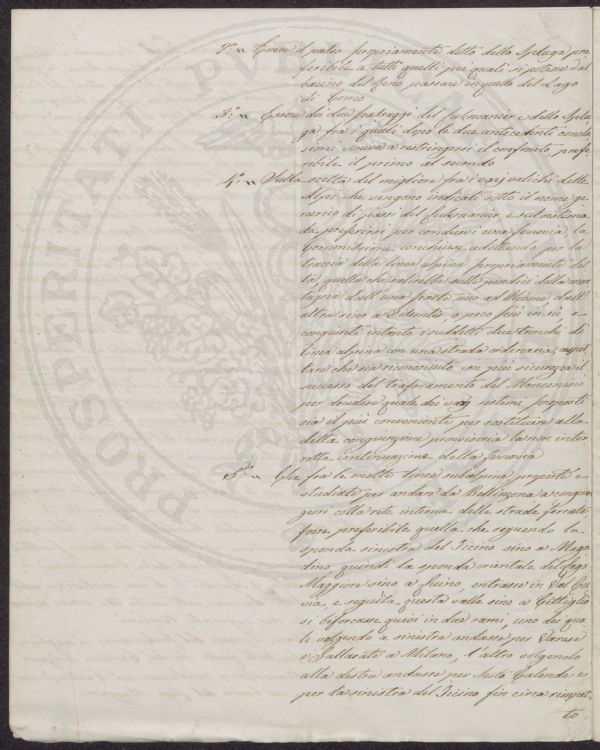 2.° Essere il passo propriamente detto dello Spluga pre
feribile a tutti quelli pei quali si potesse dal
bacino del Reno passare in quello del Lago
di Como
3.° Essere dei due passaggi del Lukmanier e dello Splu
ga fra i quali dopo le due antecedenti conclu
sioni veniva a restringersi il confronto, prefe
ribile il primo al secondo
4.° Sulla scelta del migliore fra i varj valichi delle
Alpi che vengono indicati sotto il nome ge
nerico di passi del Lukmanier, e sul sistema
da preferirsi per condurvi una ferrovia, la
Commissione conchiuse adottando per la
traccia della linea alpina propriamente det
ta, quella che salirebbe sulle pendici della mon
tagna dall'una parte sino ad Olivone dall'
altra sino a Dissentis, o poco più in su e
congiunti intanto i suddetti due tronchi di
linea alpina con una strada ordinaria, aspet
tare che sia riconosciuto con più sicurezza il
successo del traforamento del Moncenisio
per decidere quale dei varj sistemi proposti
sia il più conveniente per sostituire alla
detta congiunzione provvisoria la non inter
rotta continuazione della ferrovia
5.° Che fra le molte linee subalpine proposte e
studiate per andare da Bellinzona a congiun
gersi colla rete interna delle strade ferrate
fosse preferibile quella che seguendo la
sponda sinistra del Ticino sino a Maga
dino, quindi la sponda orientale del Lago
Maggiore sino a Luino, entrasse in Val Cu
via, e seguita questa valle sino a Gittiglio
si biforcasse quivi in due rami, uno dei qua
li volgendo a sinistra andasse per Varese
e Gallarate a Milano, l'altro volgendo
alla destra andasse per Sesto Calende e
per la sinistra del Ticino fin circa rimpet
to
PROSPERITATI PUBLICAE